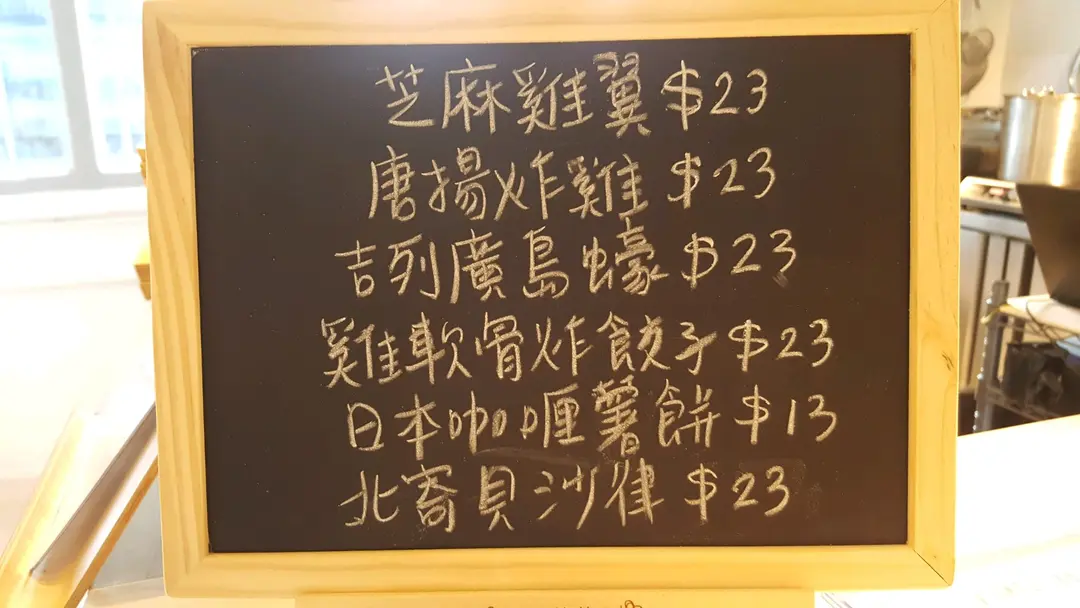 芝麻雞翼 $23
唐揚炸雞 $23
吉列廣島蠔 $23
雞軟骨炸餃子 $23
日本咖喱薯餅 $13
北寄貝沙律 $23